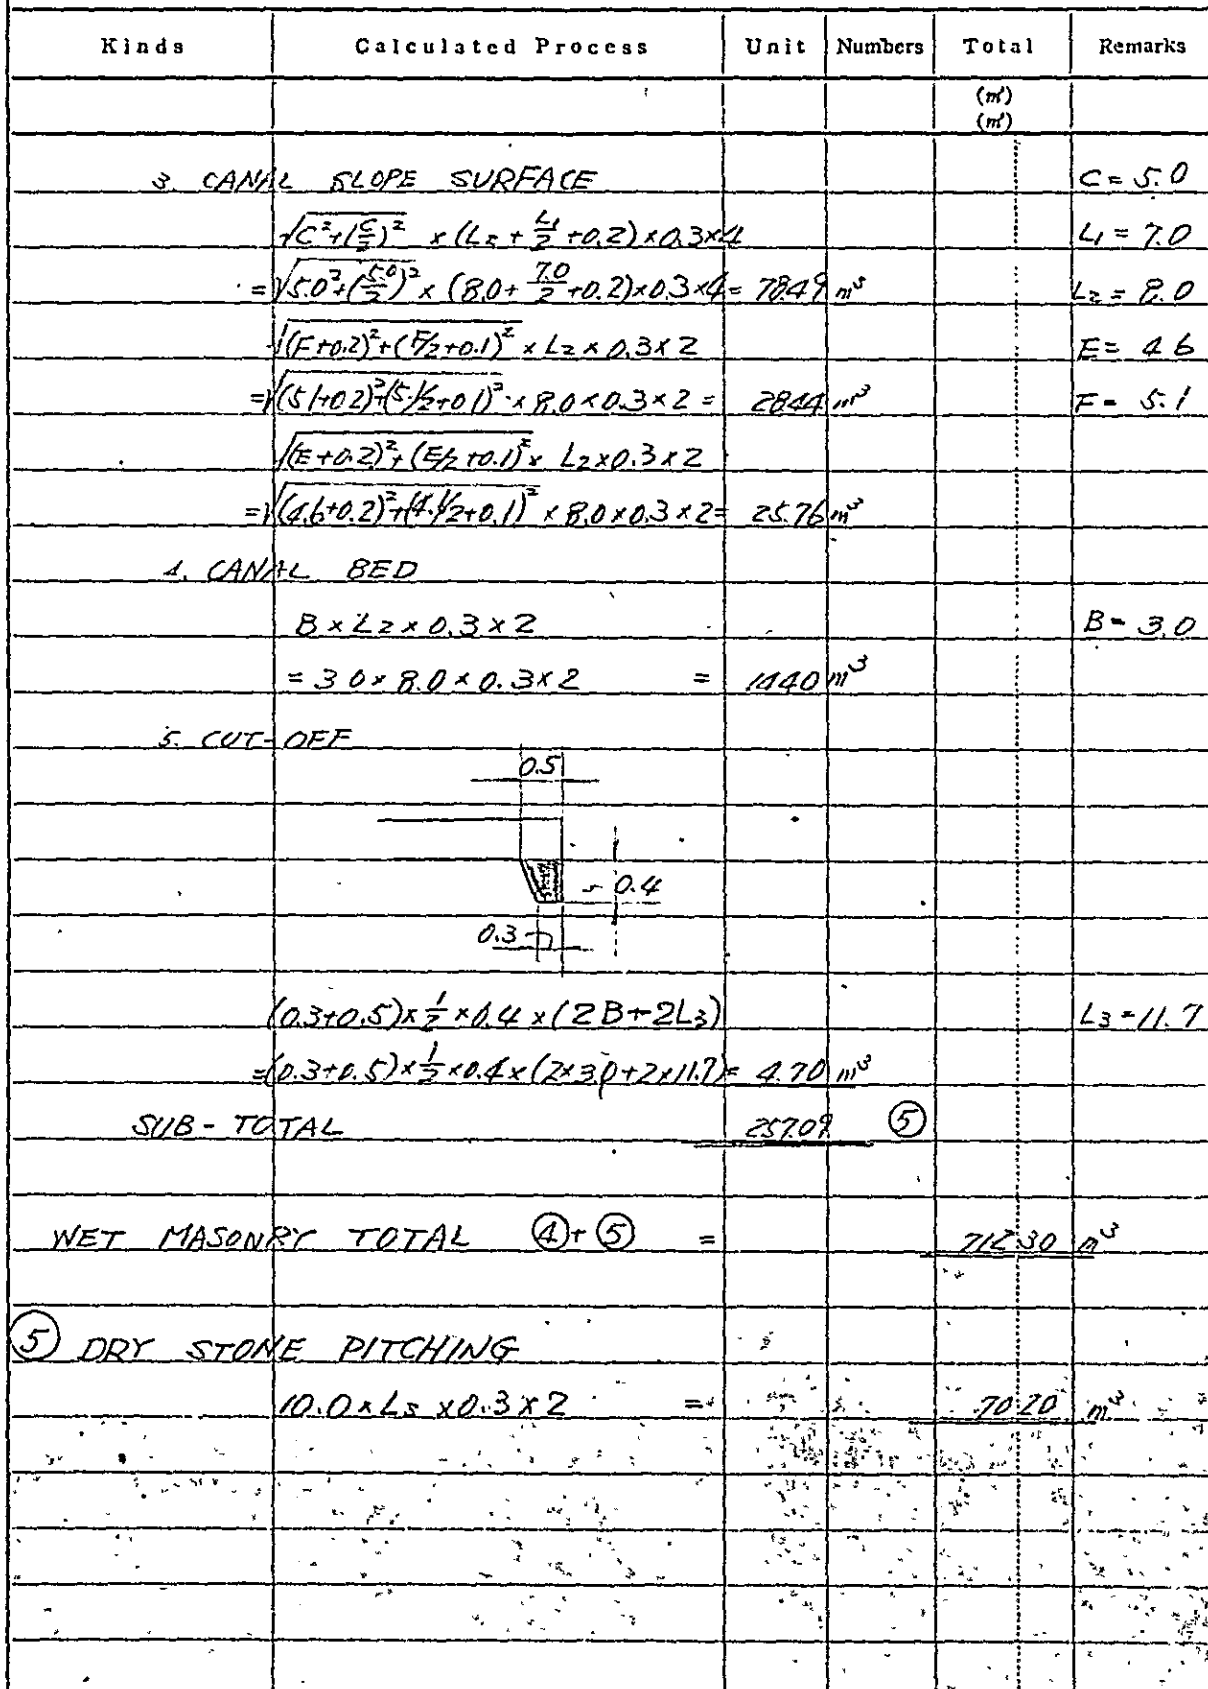 Kinds Calculated Process Unit Numbers Total Remarks
(m³)
(m³)
3. CANAL SLOPE SURFACE C = 5.0
√(C²+(C/2)²) × (L2 + L1/2 + 0.2) × 0.3 × 4 L1 = 7.0
= √(5.0²+(5.0/2)²) × (8.0 + 7.0/2 + 0.2) × 0.3 × 4 = 78.49 m³ L2 = 8.0
√((F+0.2)²+(F/2+0.1)²) × L2 × 0.3 × 2 E = 4.6
= √((5.1+0.2)²+(5.1/2+0.1)²) × 8.0 × 0.3 × 2 = 28.44 m³ F = 5.1
√((E+0.2)²+(E/2+0.1)²) × L2 × 0.3 × 2
= √((4.6+0.2)²+(4.1/2+0.1)²) × 8.0 × 0.3 × 2 = 25.76 m³
4. CANAL BED
B × L2 × 0.3 × 2 B = 3.0
= 3.0 × 8.0 × 0.3 × 2 = 14.40 m³
5. CUT-OFF
0.5
0.4
0.3
(0.3+0.5) × 1/2 × 0.4 × (2B+2L3) L3 = 11.7
= (0.3+0.5) × 1/2 × 0.4 × (2×3.0+2×11.7) = 4.70 m³
SUB-TOTAL 257.09 ⑤
WET MASONRY TOTAL ④+⑤ = 712.30 m³
⑤ DRY STONE PITCHING
10.0 × L3 × 0.3 × 2 = 70.20 m³